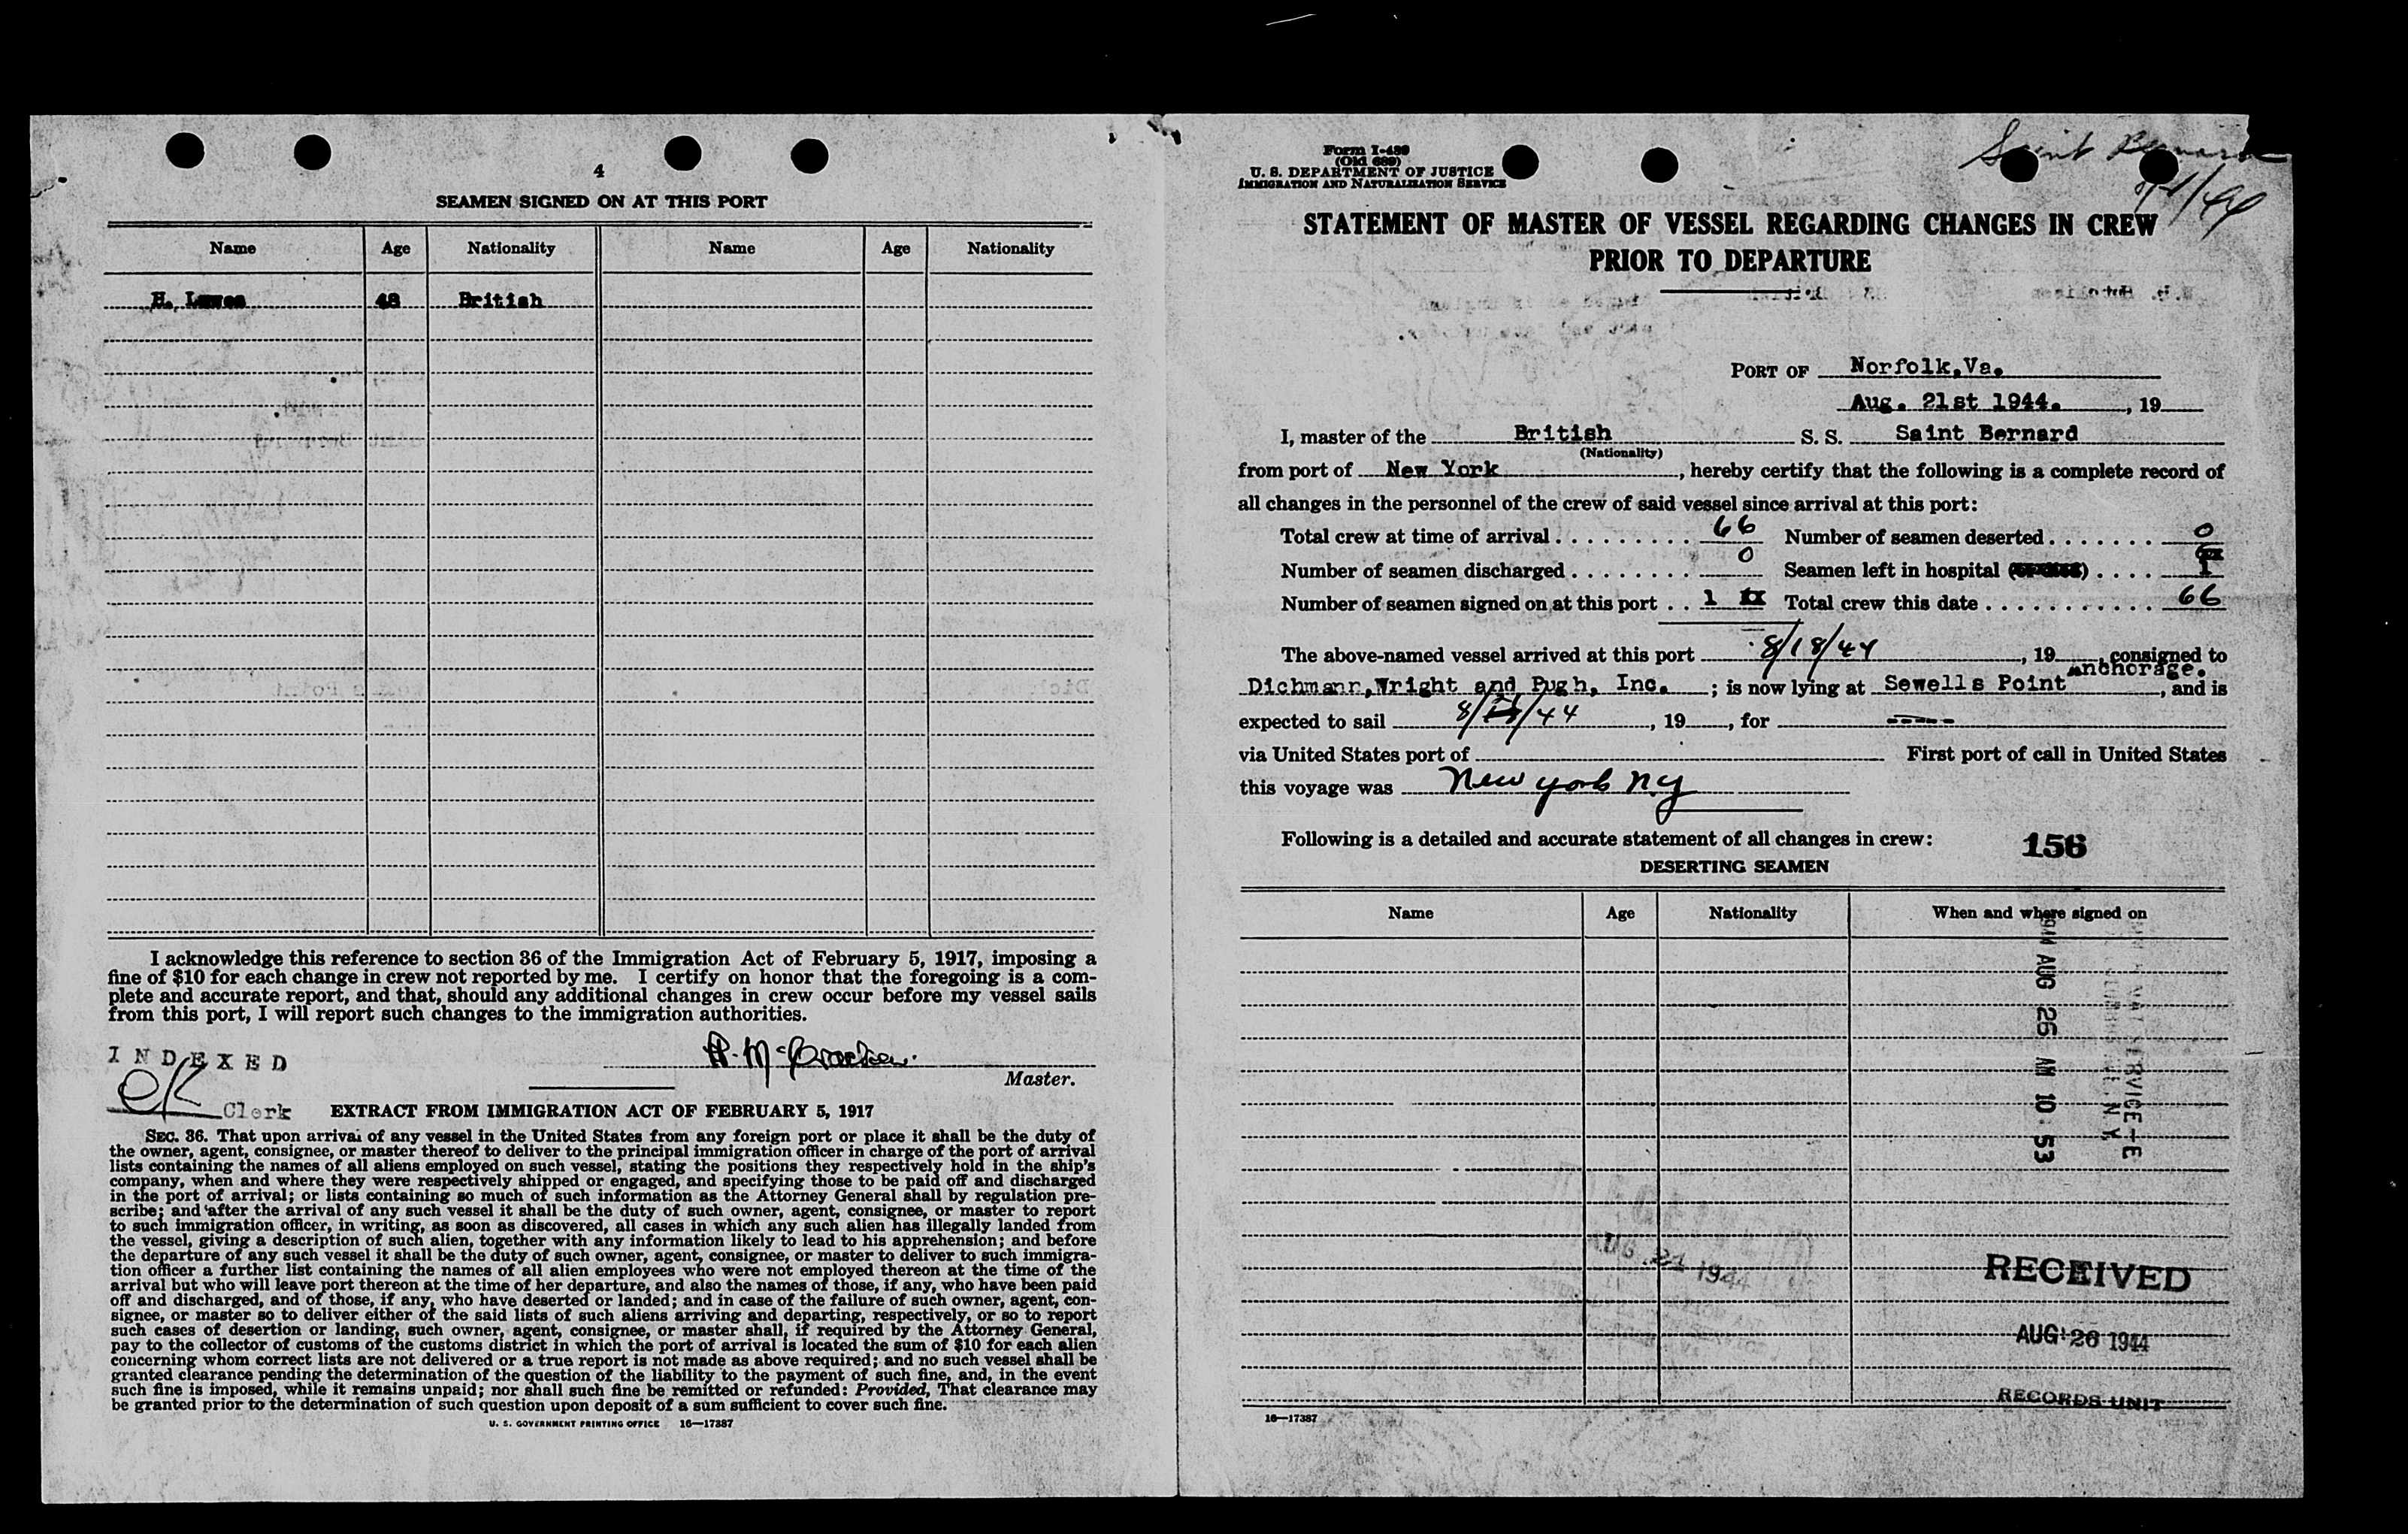 4
SEAMEN SIGNED ON AT THIS PORT
Name Age Nationality Name Age Nationality
H. 48 British
I acknowledge this reference to section 36 of the Immigration Act of February 5, 1917, imposing a
fine of $10 for each change in crew not reported by me. I certify on honor that the foregoing is a com-
plete and accurate report, and that, should any additional changes in crew occur before my vessel sails
from this port, I will report such changes to the immigration authorities.
INDEXED
Master.
Clerk
EXTRACT FROM IMMIGRATION ACT OF FEBRUARY 5, 1917
SEC. 36. That upon arrival of any vessel in the United States from any foreign port or place it shall be the duty of
the owner, agent, consignee, or master thereof to deliver to the principal immigration officer in charge of the port of arrival
lists containing the names of all aliens employed on such vessel, stating the positions they respectively hold in the ship's
company, when and where they were respectively shipped or engaged, and specifying those to be paid off and discharged
in the port of arrival; or lists containing so much of such information as the Attorney General shall by regulation pre-
scribe; and after the arrival of any such vessel it shall be the duty of such owner, agent, consignee, or master to report
to such immigration officer, in writing, as soon as discovered, all cases in which any such alien has illegally landed from
the vessel, giving a description of such alien, together with any information likely to lead to his apprehension; and before
the departure of any such vessel it shall be the duty of such owner, agent, consignee, or master to deliver to such immigra-
tion officer a further list containing the names of all alien employees who were not employed thereon at the time of the
arrival but who will leave port thereon at the time of her departure, and also the names of those, if any, who have been paid
off and discharged, and of those, if any, who have deserted or landed; and in case of the failure of such owner, agent, con-
signee, or master so to deliver either of the said lists of such aliens arriving and departing, respectively, or so to report
such cases of desertion or landing, such owner, agent, consignee, or master shall, if required by the Attorney General,
pay to the collector of customs of the customs district in which the port of arrival is located the sum of $10 for each alien
concerning whom correct lists are not delivered or a true report is not made as above required; and no such vessel shall be
granted clearance pending the determination of the question of the liability to the payment of such fine, and, in the event
such fine is imposed, while it remains unpaid; nor shall such fine be remitted or refunded: Provided, That clearance may
be granted prior to the determination of such question upon deposit of a sum sufficient to cover such fine.
U. S. GOVERNMENT PRINTING OFFICE 16—17387
Saint Bernard
Form I-489
(Old 689)
U. S. DEPARTMENT OF JUSTICE
IMMIGRATION AND NATURALIZATION SERVICE
STATEMENT OF MASTER OF VESSEL REGARDING CHANGES IN CREW
PRIOR TO DEPARTURE
PORT OF Norfolk,Va.
Aug. 21st 1944. , 19
I, master of the British S. S. Saint Bernard
(Nationality)
from port of New York , hereby certify that the following is a complete record of
all changes in the personnel of the crew of said vessel since arrival at this port:
Total crew at time of arrival . . . . . . . . . 66 Number of seamen deserted . . . . . . . 0
Number of seamen discharged . . . . . . . . 0 Seamen left in hospital . . . . 1
Number of seamen signed on at this port . . 1 Total crew this date . . . . . . . . . . . 66
The above-named vessel arrived at this port 8/18/44 , 19 , consigned to
Dichmann,Wright and Pugh, Inc. ; is now lying at Sewells Point Anchorage. , and is
expected to sail , 19 , for -----
via United States port of First port of call in United States
this voyage was New York NY
Following is a detailed and accurate statement of all changes in crew: 156
DESERTING SEAMEN
Name Age Nationality When and where signed on
1944 AUG 26 AM 10 53
AUG 24 1944
RECEIVED
AUG 26 1944
RECORDS UNIT
16—17387